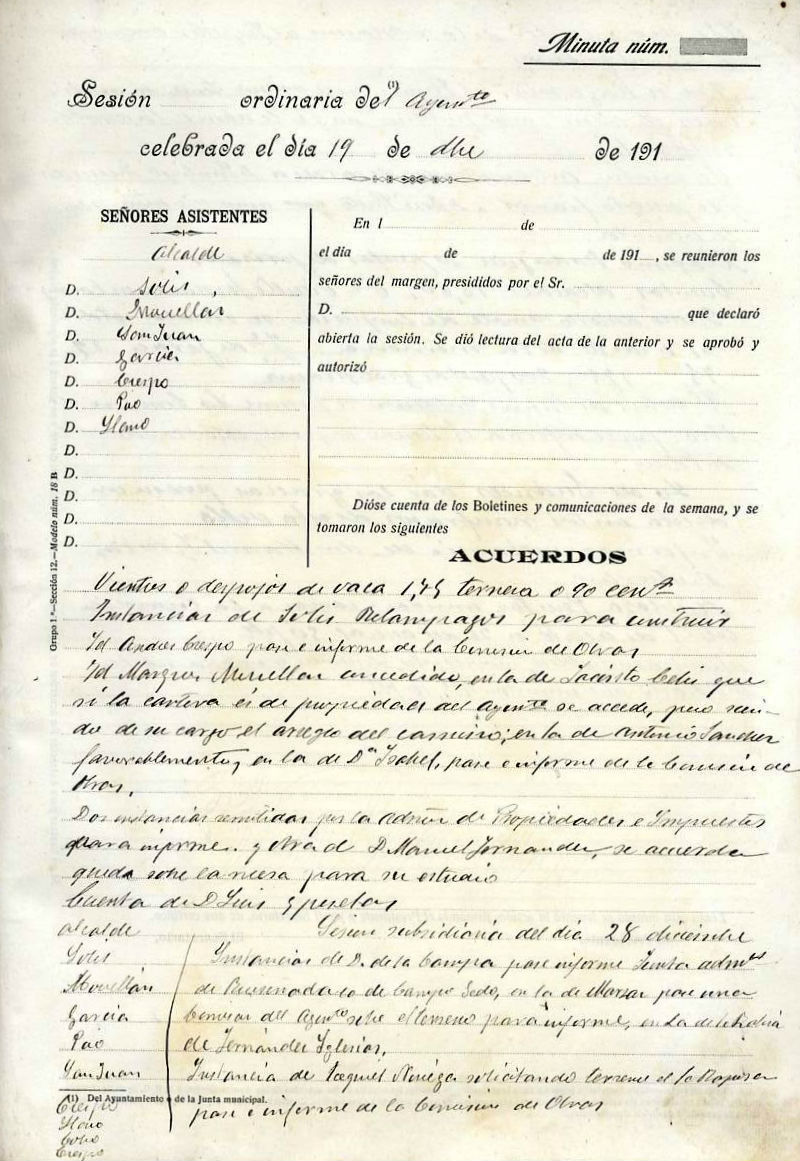 Minuta núm.
Sesión ordinaria del (1) Ayunte
celebrada el día 19 de dbre de 191
SEÑORES ASISTENTES
Alcalde
D. Solis,
D. Movellan
D. San Juan
D. García
D. Crespo
D. Pao
D. Llano
D.
D.
D.
D.
D.
En 1 de
el día de de 191 , se reunieron los
señores del margen, presididos por el Sr.
D. que declaró
abierta la sesión. Se dió lectura del acta de la anterior y se aprobó y
autorizó
Dióse cuenta de los Boletines y comunicaciones de la semana, y se
tomaron los siguientes
ACUERDOS
Grupo 1.º—Sección 12.—Modelo núm. 18 B
Vientres o despojos de vaca 1,45 ternera o 90 cents
Instancias de Solis Relampagos para construir
Id Andres Crespo pase e informe de la Comision de Obras
Id Marques Movellan concedido, en la de Jacinto que
si la cantera es de propiedad del Ayunte se accede, pero sien-
do de su cargo el arreglo del camino; en la de Antonio Sanchez
favorablemente y en la de Dª Isabel, pase e informe de la Comision de
Obras.
Dos instancias remitidas por la Admón de Propiedades e Impuestos
para informe. y otra d D. Manuel Fernandez, se acuerda
queda sobre la mesa para su estudio
Cuenta de D Luis 9 pesetas
Sesion subsidiaria del día 28 diciembre
Alcalde
Solis
Movellán
García
Pao
San Juan
Crespo
Llano
Crespo
Instancias de D. de la Campa pase informe Junta admva
de de Campo , en la de pase una
Comision del Aynto sobre el terreno para informe, en la de
de Fernández Iglesias,
Instancia de Noriega solicitando terreno
pase e informe de la Comision de Obras
(1) Del Ayuntamiento o de la Junta municipal.